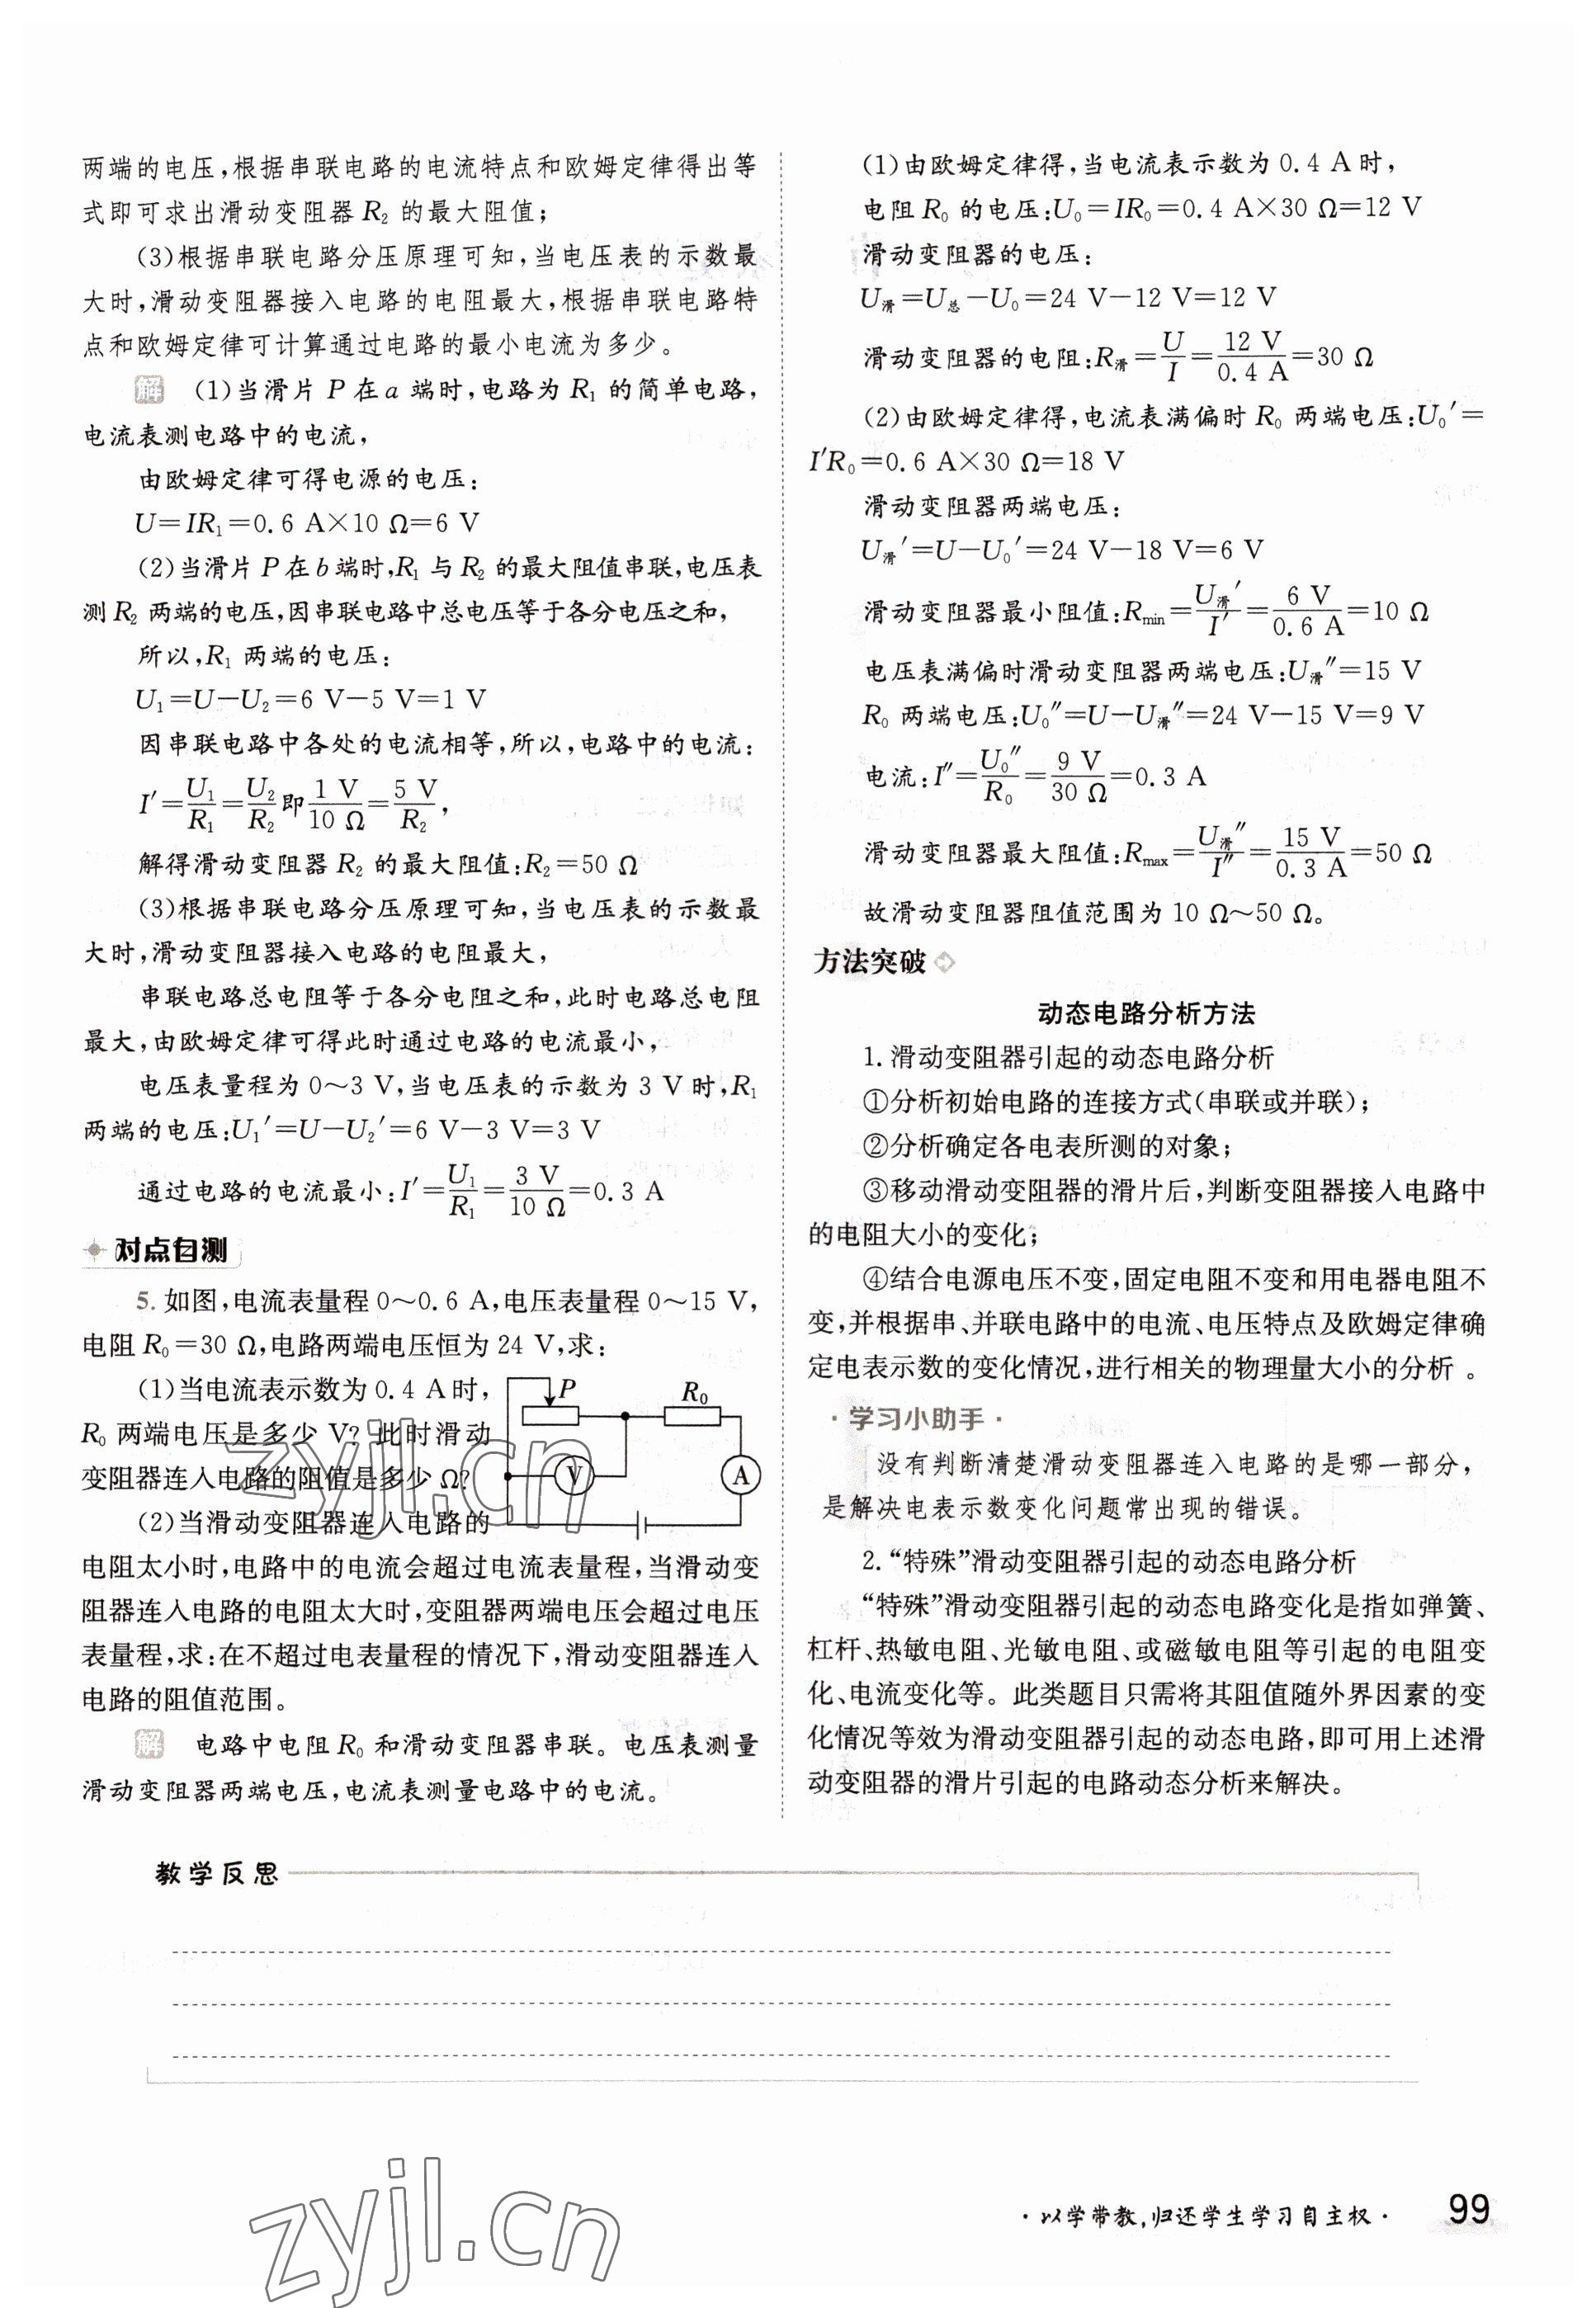 两端的电压,根据串联电路的电流特点和欧姆定律得出等
式即可求出滑动变阻器 R₂ 的最大阻值;
(3)根据串联电路分压原理可知,当电压表的示数最
大时,滑动变阻器接入电路的电阻最大,根据串联电路特
点和欧姆定律可计算通过电路的最小电流为多少。
解 (1)当滑片 P 在 a 端时,电路为 R₁ 的简单电路,
电流表测电路中的电流,
由欧姆定律可得电源的电压:
U=IR₁=0.6 A×10 Ω=6 V
(2)当滑片 P 在 b 端时,R₁ 与 R₂ 的最大阻值串联,电压表
测 R₂ 两端的电压,因串联电路中总电压等于各分电压之和,
所以,R₁ 两端的电压:
U₁=U−U₂=6 V−5 V=1 V
因串联电路中各处的电流相等,所以,电路中的电流:
I′=U₁/R₁=U₂/R₂即1 V/10 Ω=5 V/R₂,
解得滑动变阻器 R₂ 的最大阻值:R₂=50 Ω
(3)根据串联电路分压原理可知,当电压表的示数最
大时,滑动变阻器接入电路的电阻最大,
串联电路总电阻等于各分电阻之和,此时电路总电阻
最大,由欧姆定律可得此时通过电路的电流最小,
电压表量程为 0～3 V,当电压表的示数为 3 V 时,R₁
两端的电压:U₁′=U−U₂′=6 V−3 V=3 V
通过电路的电流最小:I′=U₁/R₁=3 V/10 Ω=0.3 A
对点自测
5. 如图,电流表量程 0～0.6 A,电压表量程 0～15 V,
电阻 R₀=30 Ω,电路两端电压恒为 24 V,求:
(1)当电流表示数为 0.4 A 时,
R₀ 两端电压是多少 V? 此时滑动
变阻器连入电路的阻值是多少 Ω?
(2)当滑动变阻器连入电路的
P
R₀
V
A
电阻太小时,电路中的电流会超过电流表量程,当滑动变
阻器连入电路的电阻太大时,变阻器两端电压会超过电压
表量程,求:在不超过电表量程的情况下,滑动变阻器连入
电路的阻值范围。
解 电路中电阻 R₀ 和滑动变阻器串联。电压表测量
滑动变阻器两端电压,电流表测量电路中的电流。
(1)由欧姆定律得,当电流表示数为 0.4 A 时,
电阻 R₀ 的电压:U₀=IR₀=0.4 A×30 Ω=12 V
滑动变阻器的电压:
U滑=U总−U₀=24 V−12 V=12 V
滑动变阻器的电阻:R滑=U/I=12 V/0.4 A=30 Ω
(2)由欧姆定律得,电流表满偏时 R₀ 两端电压:U₀′=
I′R₀=0.6 A×30 Ω=18 V
滑动变阻器两端电压:
U滑′=U−U₀′=24 V−18 V=6 V
滑动变阻器最小阻值:Rmin=U滑′/I′=6 V/0.6 A=10 Ω
电压表满偏时滑动变阻器两端电压:U滑″=15 V
R₀ 两端电压:U₀″=U−U滑″=24 V−15 V=9 V
电流:I″=U₀″/R₀=9 V/30 Ω=0.3 A
滑动变阻器最大阻值:Rmax=U滑″/I″=15 V/0.3 A=50 Ω
故滑动变阻器阻值范围为 10 Ω～50 Ω。
方法突破
动态电路分析方法
1. 滑动变阻器引起的动态电路分析
①分析初始电路的连接方式(串联或并联);
②分析确定各电表所测的对象;
③移动滑动变阻器的滑片后,判断变阻器接入电路中
的电阻大小的变化;
④结合电源电压不变,固定电阻不变和用电器电阻不
变,并根据串、并联电路中的电流、电压特点及欧姆定律确
定电表示数的变化情况,进行相关的物理量大小的分析 。
·学习小助手·
没有判断清楚滑动变阻器连入电路的是哪一部分,
是解决电表示数变化问题常出现的错误。
2. “特殊”滑动变阻器引起的动态电路分析
“特殊”滑动变阻器引起的动态电路变化是指如弹簧、
杠杆、热敏电阻、光敏电阻、或磁敏电阻等引起的电阻变
化、电流变化等。此类题目只需将其阻值随外界因素的变
化情况等效为滑动变阻器引起的动态电路,即可用上述滑
动变阻器的滑片引起的电路动态分析来解决。
教学反思
·以学带教,归还学生学习自主权·
99
zyjl.cn
zyjl.cn